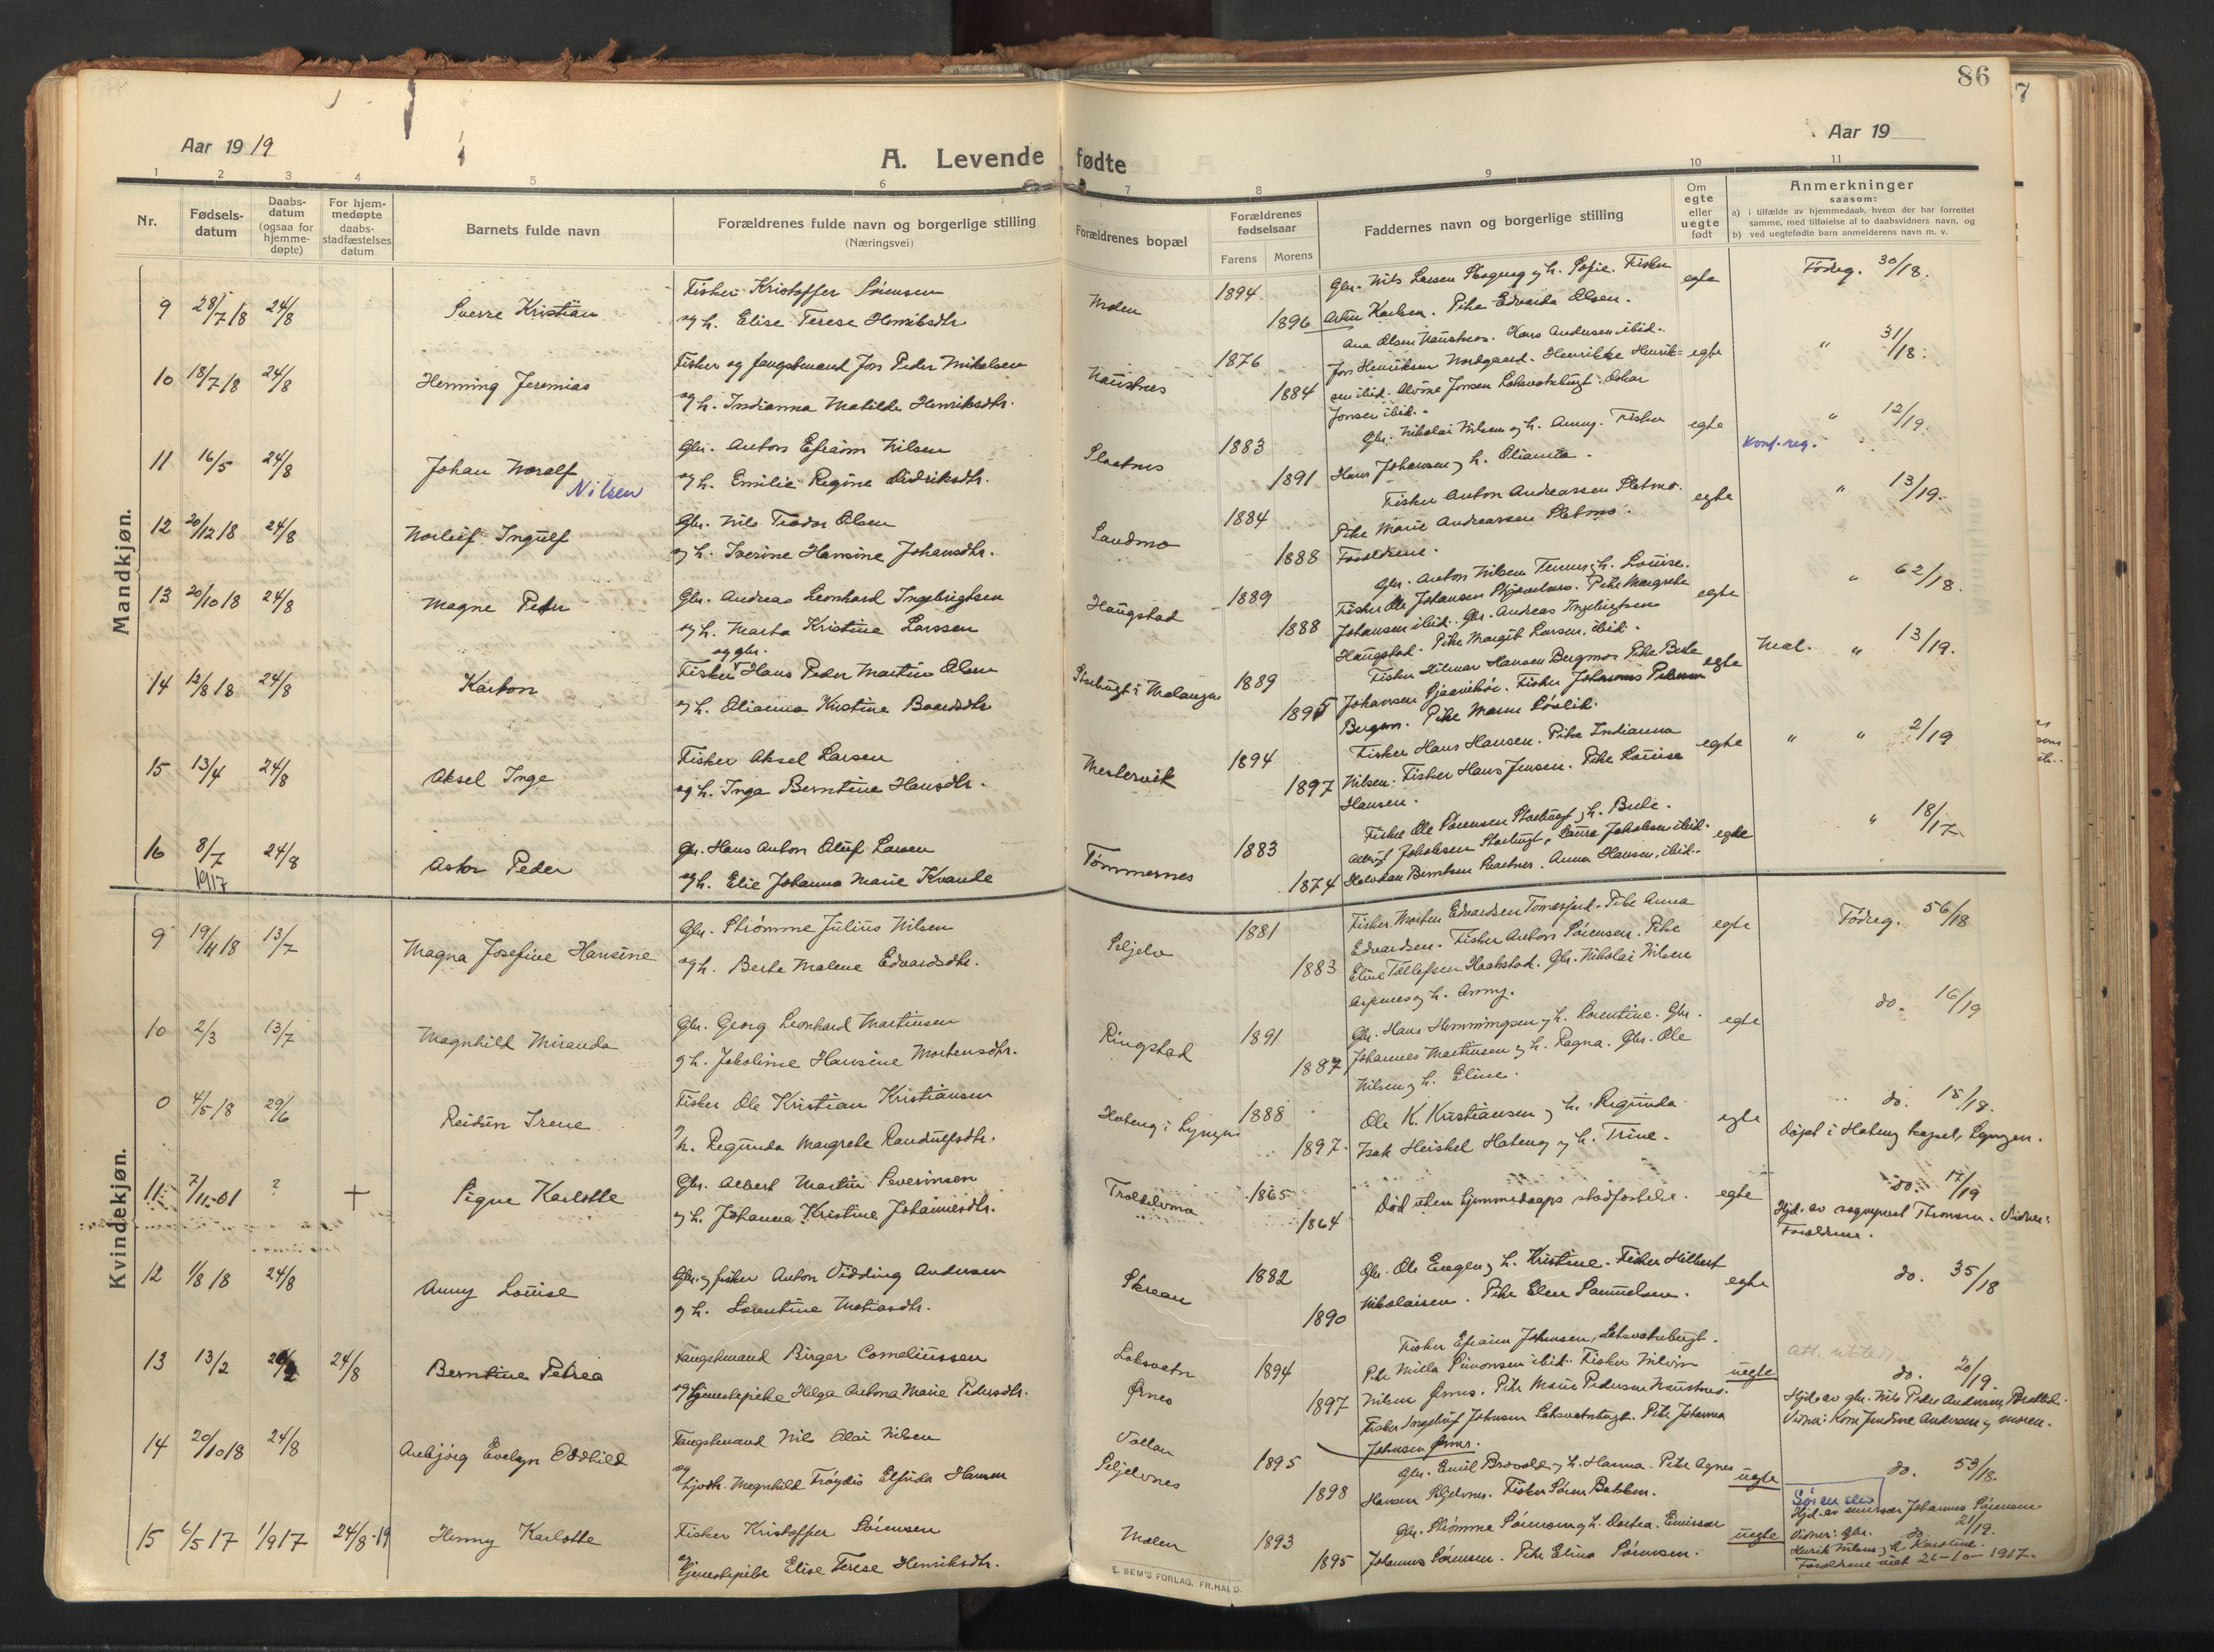 86
Aar 1919
A. Levende fødte
Aar 19
1 2 3 4 5 6 7 8 9 10 11
Nr.
Fødsels-
datum
Daabs-
datum
(ogsaa for
hjemme-
døpte)
For hjem-
medøpte
daabs-
stadfæstelses
datum
Barnets fulde navn
Forældrenes fulde navn og borgerlige stilling
(Næringsvei)
Forældrenes bopæl
Forældrenes
fødselsaar
Farens Morens
Faddernes navn og borgerlige stilling
Om
egte
eller
uegte
født
Anmerkninger
saasom:
a) i tilfælde av hjemmedaab, hvem der har forrettet
samme, med tilføielse af to daabsvidners navn, og
b) ved uegtefødte barn anmelderens navn m. v.
Mandkjøn.
9 28/7 18 24/8 Sverre Kristian
Fisker Kristoffer Sørensen
og h. Elise Terese Henriksdtr.
Molen 1894 1896
Gbr. Nils Larsen og h. Sofie. Fisker
Artur Karlsen. Pike Edvarda Olsen.
egte Födreg. 30/18.
10 18/7 18 24/8 Henning Jeremias
Fisker og fangstmand Jon Peder Mikalsen
og h. Indianna Matilde Henriksdtr.
Naustnes 1876 1884
Ana Olsen Naustnes. Hans Andersen ibid.
Jon Henriksen Nordgaard. Henrikke Henrik-
sen ibid. Jonsen Laksvatnbugt. Oskar
Jonsen ibid.
egte " 31/18.
11 16/5 24/8 Johan Noralf Nilsen
Gbr. Anton Efraim Nilsen
og h. Emilie Regine Didriksdtr.
Slaatnes 1883 1891
Gbr. Nikolai Nilsen og h. Anny. Fisker
Hans Johansen og h. Olianna.
egte " 12/19.
Konf. reg.
12 20/12 18 24/8 Norleif Ingulf
Gbr. Nils Teodor Olsen
og h. Iverine Hansine Johansdtr.
Sandmo 1884 1888
Fisker Anton Andreassen Sletmo.
Pike Marie Andreassen Sletmo.
Forældrene.
egte " 13/19.
13 20/10 18 24/8 Magne Peter
Gbr. Andreas Leonhard Ingebrigtsen
og h. Marta Kristine Larssen
Haugstad 1889 1888
Gbr. Anton Nilsen og h. Louise.
Fisker Ole Johansen. Pike Margrete
Johansen ibid. Gbr. Andreas Ingebrigtsen
Haugstad. Pike Margit Larsen, ibid.
egte " 62/18.
14 12/8 18 24/8 Karton
og gbr.
Fisker Hans Peder Martin Olsen
og h. Olianna Kristine Baardsdtr
Storbugt i Malangen 1889 1895
Fisker Hilmar Hansen Bergmo. Pike Berte
Johansen. Fisker Johannes Pedersen
Bergmo. Pike
egte Mal. " 13/19.
15 13/4 24/8 Aksel Inge
Fisker Aksel Larsen
og h. Inga Berntine Hansdtr.
Mestervik 1894 1897
Fisker Hans Hansen. Pike Indianna
Nilsen. Fisker Hans Jensen. Pike Louise
Hansen.
egte " " 2/19
16 8/7 1917 24/8 Astor Peder
Gbr. Hans Anton Oluf Larsen
og h. Elie Johanna Marie Kvande
Tømmernes 1883 1874
Fisker Ole Sørensen Storbugt og h. Berte.
Jakobsen Storbugt, Laura Jakobsen ibid.
Halvdan Berntsen Slaatnes. Anna Hansen, ibid.
egte " 18/17
Kvindekjøn.
9 19/11 18 13/7 Magna Josefine Hansine
Gbr. Strømme Julius Nilsen
og h. Berte Malene Edvardsdtr.
Seljelv 1881 1883
Fisker Morten Edvardsen Tomasjord. Pike Anna
Edvardsen. Fisker Anton Sørensen. Pike
Eline Tollefsen. Gbr. Nikolai Nilsen
og h. Anny.
egte Födreg. 56/18
10 2/3 13/7 Magnhild Miranda
Gbr. Georg Leonhard Martinsen
og h. Jakobine Hansine Mortensdtr.
Ringstad 1891 1887
Gbr. Hans Henningsen og h. Lorentine. Gbr.
Johannes Martinsen og h. Ragna. Gbr. Ole
Nilsen og h. Eline.
egte do. 16/19
0 4/5 18 29/6 Reidun Irene
Fisker Ole Kristian Kristiansen
og h. Regunda Margrete Randulfsdtr.
Hateng i Lyngen 1888 1897.
Ole K. Kristiansen og h. Regunda
Isak Heiskel Hateng og h. Trine.
egte do. 18/18.
Døpt i Hateng kapel, Lyngen.
11 7/11-01 ? + Signe Karlotte
Gbr. Albert Martin Severinsen
og h. Johanna Kristine Johannesdtr.
1865 1864
Død uten hjemmedaaps stadfæstelse.
egte do. 17/19
Hjd. av sogneprest Thomsen. Vidner:
Forældrene.
12 1/8 18 24/8 Anny Louise
Gbr. og fisker Anton Vidding Andersen
og h. Lorentine Matiasdtr.
Skrean 1882 1890
Gbr. Ole og h. Kristine. Fisker Hilbert
Nikolaisen. Pike Elen Samuelsen.
egte do. 35/18
13 13/2 24/8 Berntine Petrea
Fangstmand Birger Corneliussen
og tjenestepike Helga Antona Marie Pedersdtr.
Laksvatn
Ørnes 1894 1897
Fisker Efraim Johnsen, Laksvatnbugt.
Pike Milla Simonsen ibid. Fisker
Nilsen Ørnes. Pike Marie Pedersen Naustnes.
Fisker Ingeluf Johnsen Laksvatnbugt. Pike Johanna
Johnsen Ørnes.
uegte do. 20/19.
Hjd. av gbr. Nils Peder Andersen,
Vidner: Andersen og moren.
14 20/10 18 24/8 Aubjörg Evelyn Oddhild
Fangstmand Nils Olai Nilsen
og Magnhild Frøydis Elfrida Hansen
Vollan
Seljelvnes 1895 1898
Gbr. Emil Brovold og h. Hanna. Pike Agnes
Hansen Seljelvnes. Fisker Søren Bakken.
uegte do. 53/18.
15 6/5 17 1/9 17 24/8-19 Henny Karlotte
Fisker Kristoffer Sörensen
og tjenestepike Elise Terese Henriksdtr.
Molen 1893 1895
Gbr. Strømme Sörensen og h. Dortea. Emissær
Johannes Sörensen. Pike Elina Sörensen.
uegte
Hjd. av emissær Johannes Sörensen
Vidner: Gbr. do. 21/19.
Henrik Nilsen og h. Karoline.
Forældrene viet 21-10-1917.
E. SEM'S FORLAG, FR.HALD.